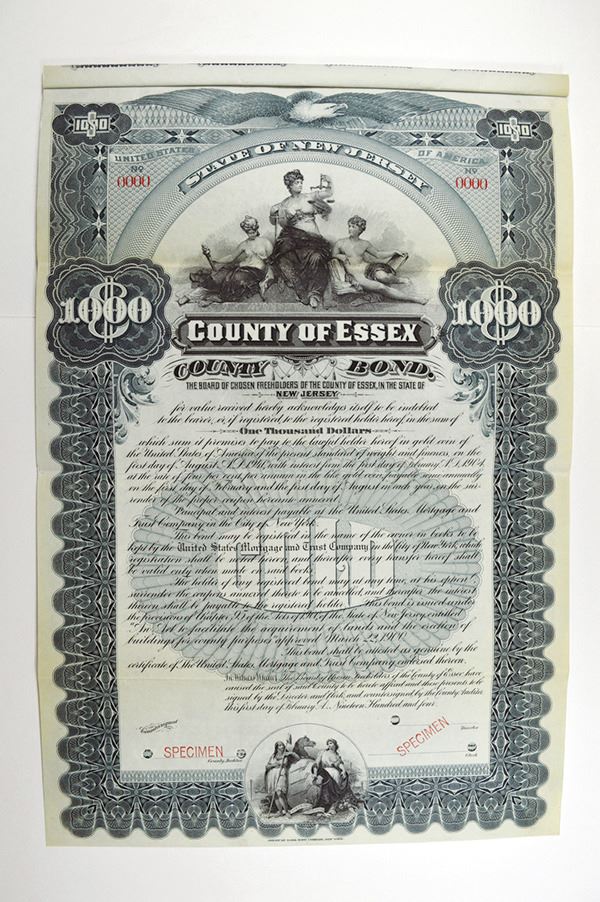 1000 1000
UNITED STATES OF AMERICA
No No
0000 0000
STATE OF NEW JERSEY
1000 1000
COUNTY OF ESSEX
COUNTY BOND.
THE BOARD OF CHOSEN FREEHOLDERS OF THE COUNTY OF ESSEX, IN THE STATE OF
NEW JERSEY
for value received hereby acknowledges itself to be indebted
to the bearer, or, if registered, to the registered holder hereof, in the sum of
One Thousand Dollars
which sum it promises to pay to the lawful holder hereof in gold coin of
the United States of America of the present standard of weight and fineness, on the
first day of August, A.D. with interest from the first day of February A.D. 1904
at the rate of four per cent. per annum in like gold coin, payable semi-annually
on the first day of February and the first day of August in each year, on the sur-
render of the proper coupon hereunto annexed.
Principal and interest payable at the United States Mortgage and
Trust Company in the City of New York.
This bond may be registered in the name of the owner in books to be
kept by the United States Mortgage and Trust Company in the City of New York, which
registration shall be noted hereon, and thereafter every transfer hereof shall
be valid only when made on said books.
The holder of any registered bond may at any time, at his option
surrender the coupons annexed thereto to be cancelled, and thereafter the interest
thereon shall be payable to the registered holder. This bond is issued under
the provisions of Chapter of the State of New Jersey, entitled
"An Act to facilitate the acquirement of lands and the erection of
buildings for county purposes approved March 22, 1900.
This bond shall be attested as genuine by the
certificate of The United States Mortgage and Trust Company endorsed thereon.
In Witness Whereof The Board of Chosen Freeholders of the County of Essex have
caused the seal of said County to be hereto affixed and these presents to be
signed by the Director and Clerk, and countersigned by the County Auditor
this first day of February A.D. Nineteen Hundred and four.
Countersigned
Director
SPECIMEN SPECIMEN
County Auditor Clerk
AMERICAN BANK NOTE COMPANY, NEW YORK.